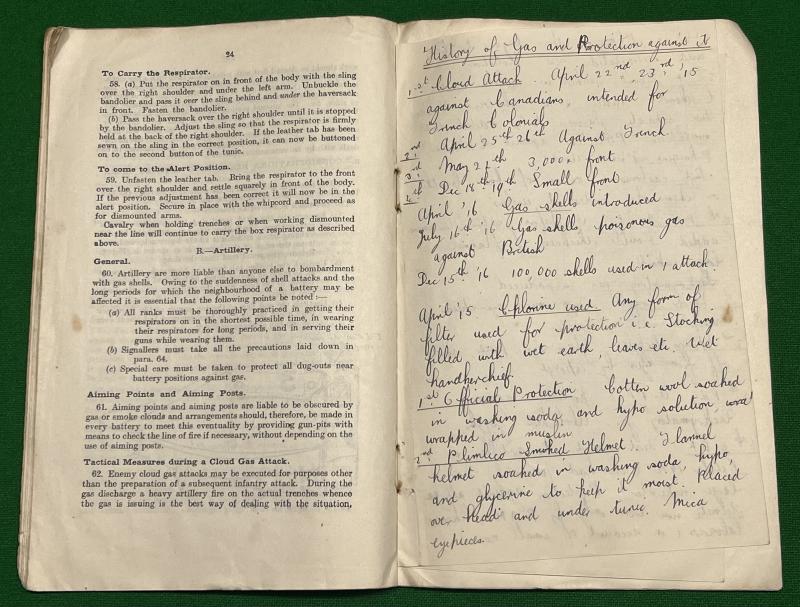 24
To Carry the Respirator.
58. (a) Put the respirator on in front of the body with the sling
over the right shoulder and under the left arm. Unbuckle the
bandolier and pass it over the sling behind and under the haversack
in front. Fasten the bandolier.
(b) Pass the haversack over the right shoulder until it is stopped
by the bandolier. Adjust the sling so that the respirator is firmly
held at the back of the right shoulder. If the leather tab has been
sewn on the sling in the correct position, it can now be buttoned
on to the second button of the tunic.
To come to the Alert Position.
59. Unfasten the leather tab. Bring the respirator to the front
over the right shoulder and settle squarely in front of the body.
If the previous adjustment has been correct it will now be in the
alert position. Secure in place with the whipcord and proceed as
for dismounted arms.
Cavalry when holding trenches or when working dismounted
near the line will continue to carry the box respirator as described
above.
B.—Artillery.
General.
60. Artillery are more liable than anyone else to bombardment
with gas shells. Owing to the suddenness of shell attacks and the
long periods for which the neighbourhood of a battery may be
affected it is essential that the following points be noted :—
(a) All ranks must be thoroughly practiced in getting their
respirators on in the shortest possible time, in wearing
their respirators for long periods, and in serving their
guns while wearing them.
(b) Signallers must take all the precautions laid down in
para. 64.
(c) Special care must be taken to protect all dug-outs near
battery positions against gas.
Aiming Points and Aiming Posts.
61. Aiming points and aiming posts are liable to be obscured by
gas or smoke clouds and arrangements should, therefore, be made in
every battery to meet this eventuality by providing gun-pits with
means to check the line of fire if necessary, without depending on the
use of aiming posts.
Tactical Measures during a Cloud Gas Attack.
62. Enemy cloud gas attacks may be executed for purposes other
than the preparation of a subsequent infantry attack. During the
gas discharge a heavy artillery fire on the actual trenches whence
the gas is issuing is the best way of dealing with the situation,
History of Gas and Protection against it
1st Cloud Attack. April 22nd, 23rd, '15
against Canadians, intended for
French Colonials
2nd April 25th 26th Against French.
3rd May 24th 3,000x front
4th Dec 18th 19th Small front
April '16 Gas shells introduced
July 16th '16 Gas shells poisonous gas
against British
Dec 15th '16 100,000 shells used in 1 attack.
April '15 Chlorine used. Any form of
filter used for protection i.e. Stocking
filled with wet earth, leaves etc. Wet
handkerchief.
1st Official Protection Cotton wool soaked
in washing soda and hypo solution
wrapped in muslin
2nd Plimlico Smoked Helmet. Flannel
helmet soaked in washing soda, hypo,
and glycerine to keep it moist. Placed
over head and under tunic. Mica
eyepieces.